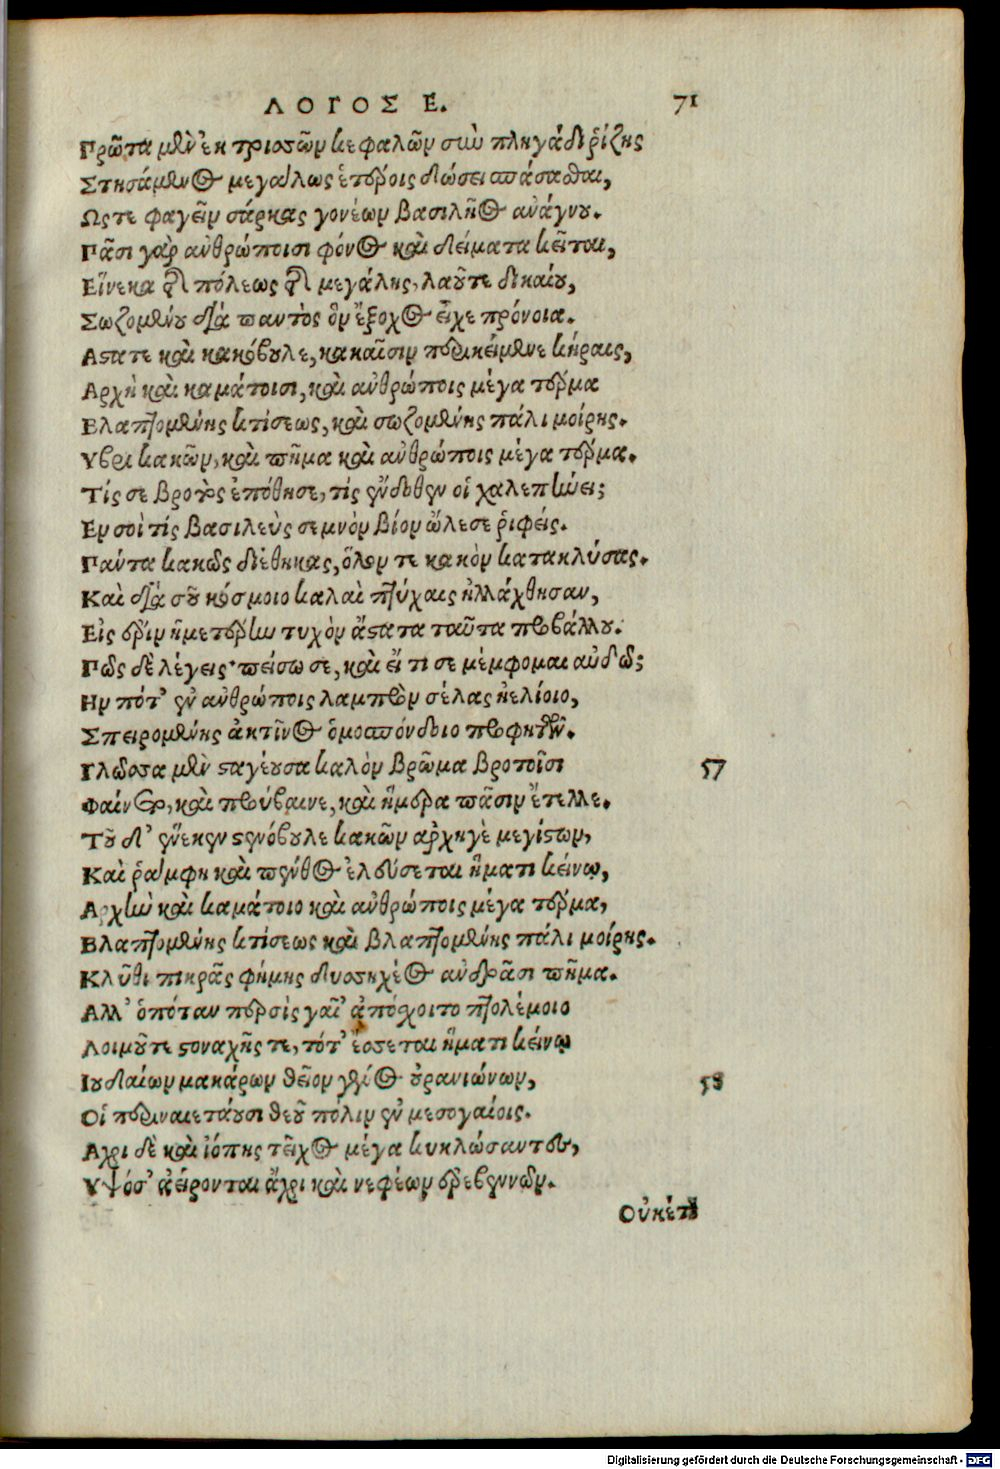 ΛΟΓΟΣ Ε. 71
Πρῶτα μὲν ἐκ τρισσῶν κεφαλῶν σὺν πληγάδι ῥίζης
Στησάμενος μεγάλως ἑτέροις δώσει πάσασθαι,
Ὥςτε φαγεῖν σάρκας γονέων βασιλῆος ἀνάγνου.
Πᾶσι γὰρ ἀνθρώποισι φόνος καὶ δείματα κεῖται,
Εἵνεκα τῆς πόλεως τῆς μεγάλης, λαοῦ τε δικαίου,
Σωζομένου διὰ παντὸς ὃν ἔξοχος εἶχε πρόνοια.
Αστατε καὶ κακόβουλε, κακαῖσιν περικείμενε κήραις,
Αρχὴ καὶ καμάτοισι, καὶ ἀνθρώποις μέγα τέρμα
Βλαπτομένης κτίσεως, καὶ σωζομένης πάλι μοίρης.
Υβρι κακῶν, καὶ πῆμα καὶ ἀνθρώποις μέγα τέρμα.
Τίς σε βροτῶν ἐπόθησε, τίς ἔνδοθεν οἱ χαλεπήνει;
Εν σοὶ τίς βασιλεὺς σεμνὸν βίον ὤλεσε ῥιφείς.
Πάντα κακῶς διέθηκας, ὅλον τε κακὸν κατακλύσας.
Καὶ διὰ σοῦ κόσμοιο καλαὶ πτύχαις ἠλλάχθησαν,
Εἰς ἔριν ἡμετέρην τυχὸν ἄστατα ταῦτα προβάλλου.
Πῶς δὲ λέγεις· πείσω σε, καὶ εἴ τί σε μέμφομαι αὐδῶ;
Ην πότ' ἐν ἀνθρώποις λαμπρὸν σέλας ἠελίοιο,
Σπειρομένης ἀκτῖνος ὁμοσπόνδοιο προφητῶν.
Γλῶσσα μὲν σταγέουσα καλὸν βρῶμα βροτοῖσι 57
Φαίνετο, καὶ προύβαινε, καὶ ἥμερα πᾶσιν ἔτελλε.
Τοῦ δ' ἕνεκεν στενόβουλε κακῶν ἀρχηγὲ μεγίστων,
Καὶ ῥάμφη καὶ πένθος ἐλεύσεται ἤματι κείνῳ,
Αρχὴν καὶ καμάτοιο καὶ ἀνθρώποις μέγα τέρμα,
Βλαπτομένης κτίσεως καὶ βλαπτομένης πάλι μοίρης.
Κλῦθι πικρᾶς φήμης δυσηχέος ἀνδράσι πῆμα.
Αλλ' ὁπόταν περσὶς γαῖ' ἀπόσχοιτο πτολέμοιο
Λοιμοῦ τε στοναχῆς τε, τότ' ἔσσεται ἤματι κείνῳ
Ιουδαίων μακάρων θεῖον γένος οὐρανιώνων, 58
Οἳ περιναιετάουσι θεοῦ πόλιν ἐν μεσογαίοις.
Αχρι δὲ καὶ ἰόπης τεῖχος μέγα κυκλώσαντες,
Υψόσ' ἀείρονται ἄχρι καὶ νεφέων ἐρεβεννῶν.
Οὐκέτι